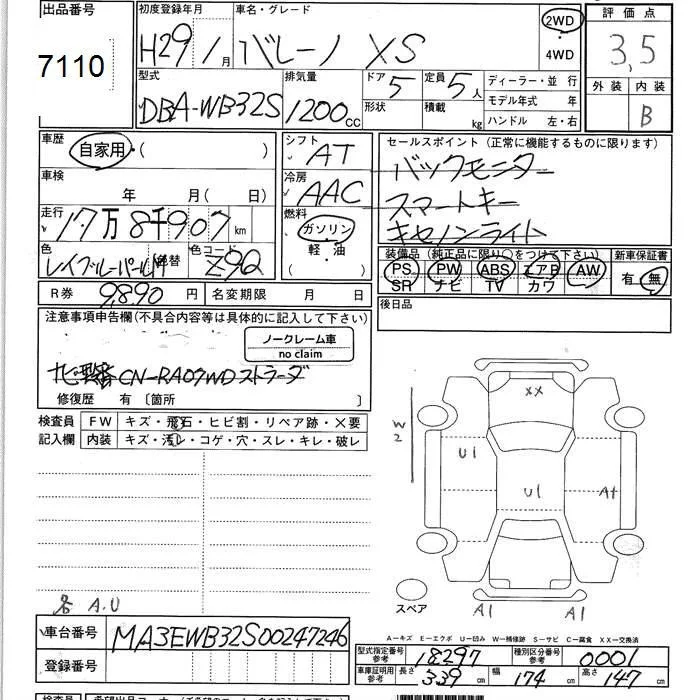 出品番号
7110
初度登録年月
H29 / 月
車名・グレード
バレーノ XS
2WD
4WD
評価点
3,5
外装 内装
B
型式
DBA-WB32S
排気量
1200 cc
ドア 5
形状
定員 5 人
積載 kg
ディーラー・並行
モデル年式 年
ハンドル 左・右
車歴
自家用・( )
車検
年 月( 日)
走行
17万8千907 km
色
色コード
Z9Q
シフト
AT
冷房
AAC
燃料
ガソリン
軽・油
( )
セールスポイント(正常に機能するものに限ります)
バックモニター
スマートキー
キセノンライト
装備品(純正品に限り○をつけて下さい)
PS PW ABS エアB AW
SR ナビ TV カワ
新車保証書
有・無
後日品
R券 9,890 円
名変期限 月 日
注意事項申告欄(不具合内容等は具体的に記入して下さい)
ノークレーム車
no claim
CN-RA07WD ストラーダ
修復歴 有 〔箇所 〕
検査員
記入欄
FW キズ・飛石・ヒビ割・リペア跡・×要
内装 キズ・汚レ・コゲ・穴・スレ・キレ・破レ
XX
W2
U1
U1
A1
スペア
A1
A1
A.U
車台番号
MA3EWB32S00247246
登録番号
A-キズ E-エクボ U-凹み W-補修跡 S-サビ C-腐食 XX-交換済
型式指定番号
参考
18297
種別区分番号
参考
0001
車庫証明用
参考
長さ 339 cm
幅 174 cm
高さ 147 cm